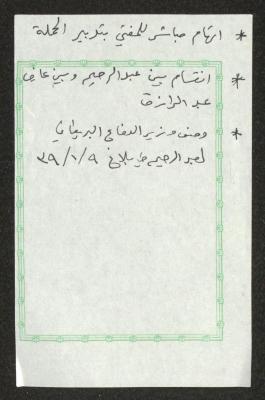 * اتهام مباشر للمفتي بتدبير الحملة
* انقسام بين عبد الرحيم وبين عارف
عبد الرازق
* وصف وزير الدفاع البريطاني
لعبد الرحيم في بلاغ ٣٩/١/٩